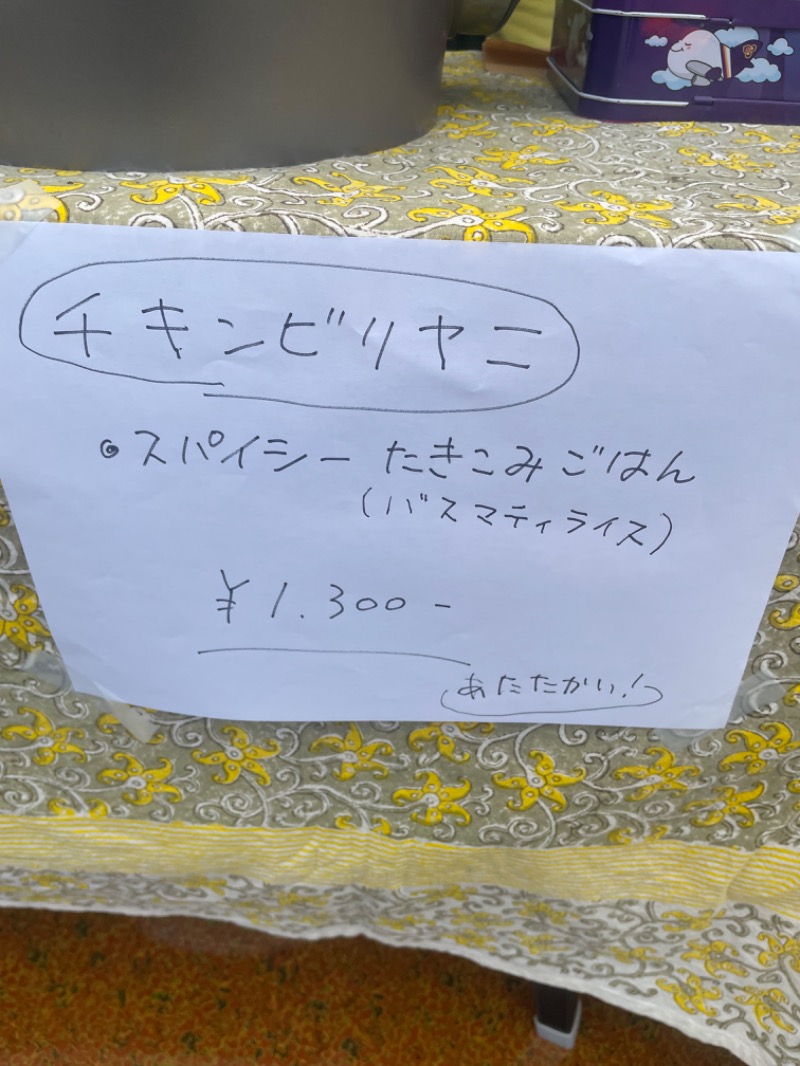 チキンビリヤニ
◉スパイシー たきこみごはん
(バスマティライス)
¥1.300-
あたたかい!